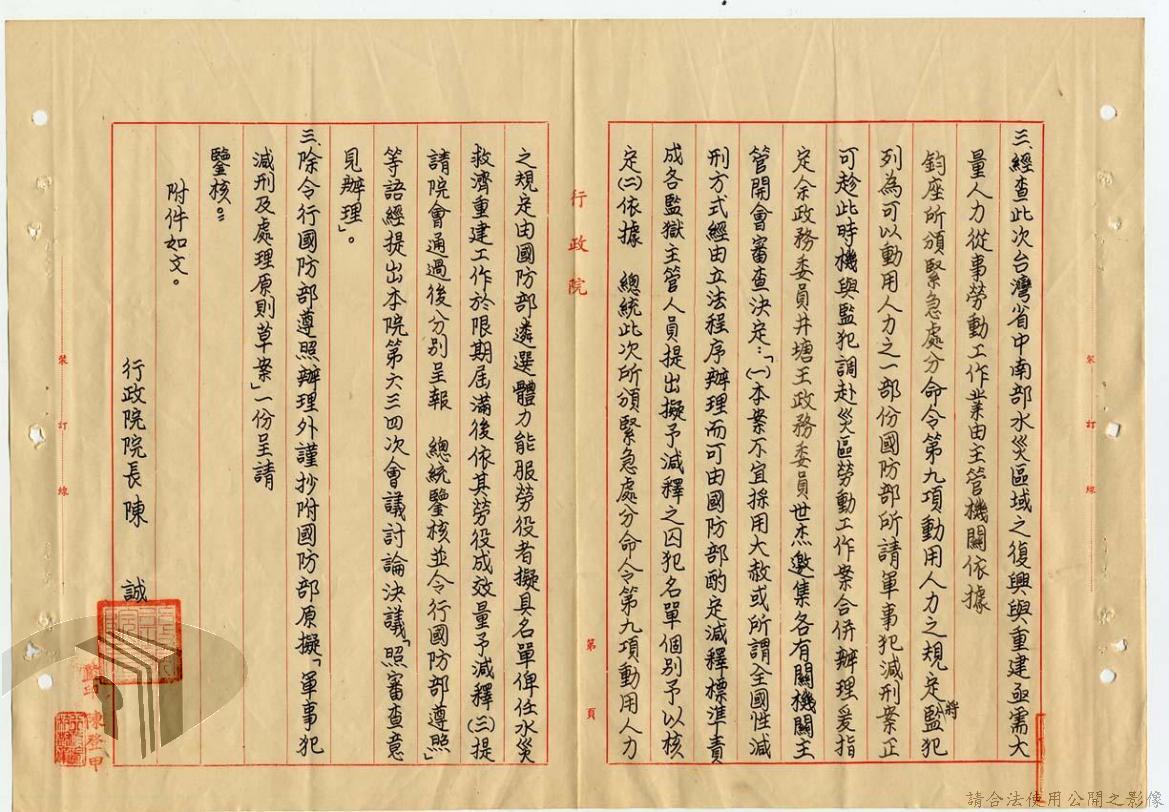 三、經查此次台灣省中南部水災區域之復興與重建亟需大
量人力從事勞動工作業由主管機關依據
鈞座所頒緊急處分命令第九項動用人力之規定將監犯
列為可以動用人力之一部份國防部所請軍事犯減刑案正
可趁此時機與監犯調赴災區勞動工作案合併辦理爰指
定余政務委員井塘王政務委員世杰邀集各有關機關主
管開會審查決定：「㈠本案不宜採用大赦或所謂全國性減
刑方式經由立法程序辦理而可由國防部酌定減釋標準責
成各監獄主管人員提出擬予減釋之囚犯名單個別予以核
定㈡依據　總統此次所頒緊急處分命令第九項動用人力
行政院
第　頁
裝訂線
之規定由國防部遴選體力能服勞役者擬具名單俾任水災
救濟重建工作於限期屆滿後依其勞役成效量予減釋㈢提
請院會通過後分別呈報　總統鑒核並令行國防部遵照」
等語經提出本院第六三四次會議討論決議「照審查意
見辦理」。
三、除令行國防部遵照辦理外謹抄附國防部原擬「軍事犯
減刑及處理原則草案」一份呈請
鑒核。
附件如文。
行政院院長陳　誠
裝訂線
監印陳啓甲
請合法使用公開之影像